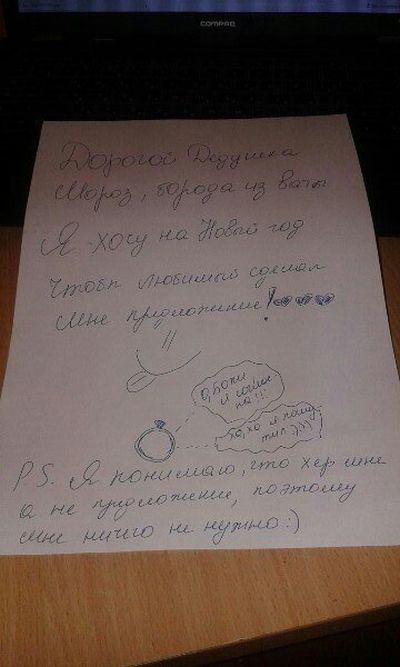 COMPAQ
Дорогой Дедушка
Мороз, борода из ваты
Я хочу на Новый год
Чтобы любимый сделал
мне предложение!
О, Боже
я соглас
на!!!
Ха, хо я пошу
тил :):)
P.S. Я понимаю, что хер мне
а не предложение, поэтому
мне ничего не нужно :)